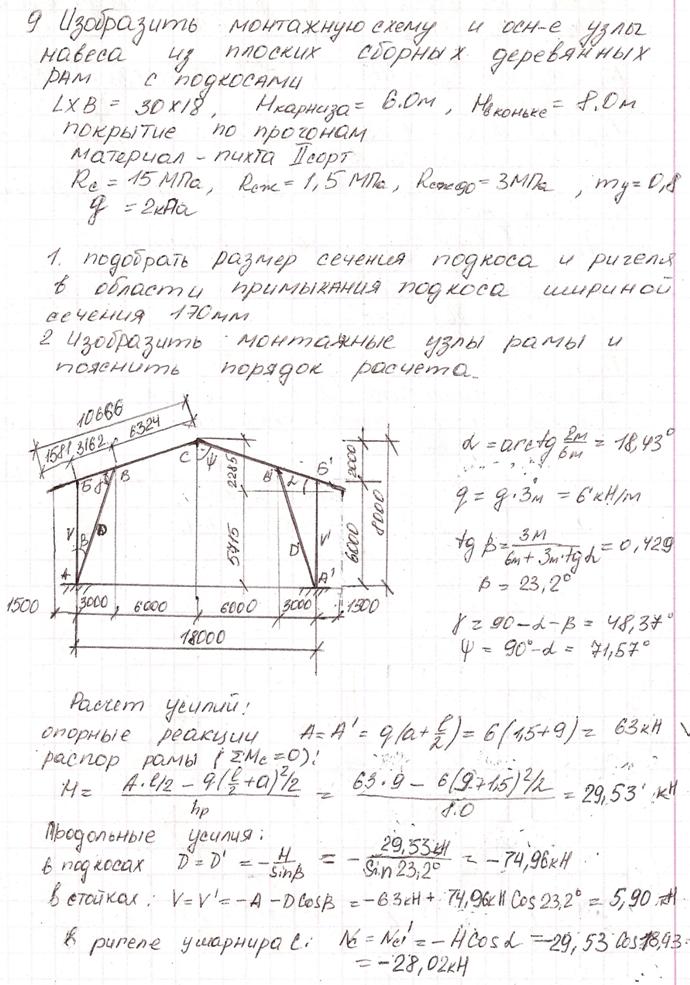 9 Изобразить монтажную схему и осн-е узлы
навеса из плоских сборных деревянных
рам с подкосами
LXB = 30x18, Hкарниза = 6.0м, Hвконьке = 8.0м
покрытие по прогонам
материал - пихта II сорт
Rc = 15 МПа, Rсж = 1,5 МПа, = 3МПа, my = 0,8
g = 2кПа
1. подобрать размер сечения подкоса и ригеля
в области примыкания подкоса шириной
сечения 170мм
2 Изобразить монтажные узлы рамы и
пояснить порядок расчета.
10666
1581 3162 6324
C ψ
Б γ B
B' α Б'
2285
2000
V β D
5715
6000
8000
D' V'
A
A'
1500 3000 6000 6000 3000 1500
18000
α = arctg 2м/6м = 18,43°
q = g·3м = 6 кН/м
tg β = 3м/(6м+3м·tgα) = 0,429
β = 23,2°
γ = 90-α-β = 48,37°
ψ = 90°-α = 71,57°
Расчет усилий:
опорные реакции A = A' = q(a+l/2) = 6(1,5+9) = 63 кН
распор рамы (ΣMc=0):
H = (A·l/2 - q(l/2+a)²/2)/hp = (63·9 - 6(9+1,5)²/2)/8.0 = 29,53 кН
Продольные усилия:
в подкосах D = D' = -H/sinβ = -29,53кН/Sin23,2° = -74,96кН
в стойках: V = V' = -A - DCosβ = -63кН + 74,96кН Cos23,2° = 5,90 кН
в ригеле у шарнира C: Nc = Nc' = -HCosα = -29,53 Cos18,43 =
= -28,02кН